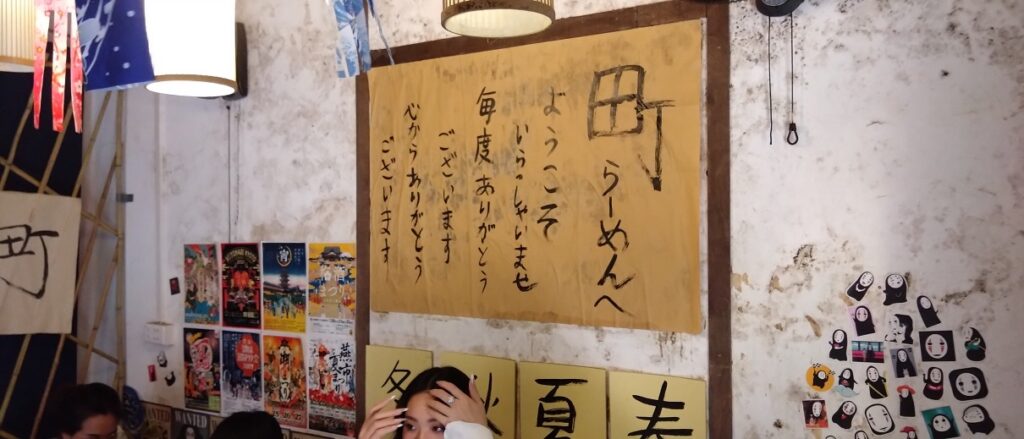 町
らーめんへ
ようこそ
いらっしゃいませ
毎度ありがとう
ございます
心からありがとう
ございます
町
春
夏
秋
冬
WANTED